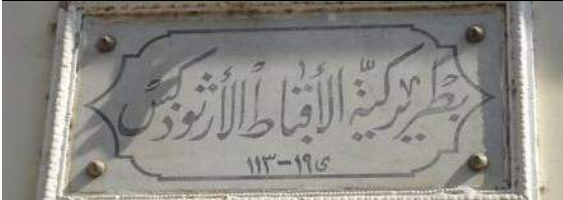 بطريركية الأقباط الأرثوذكس
ي١٩-١١٣